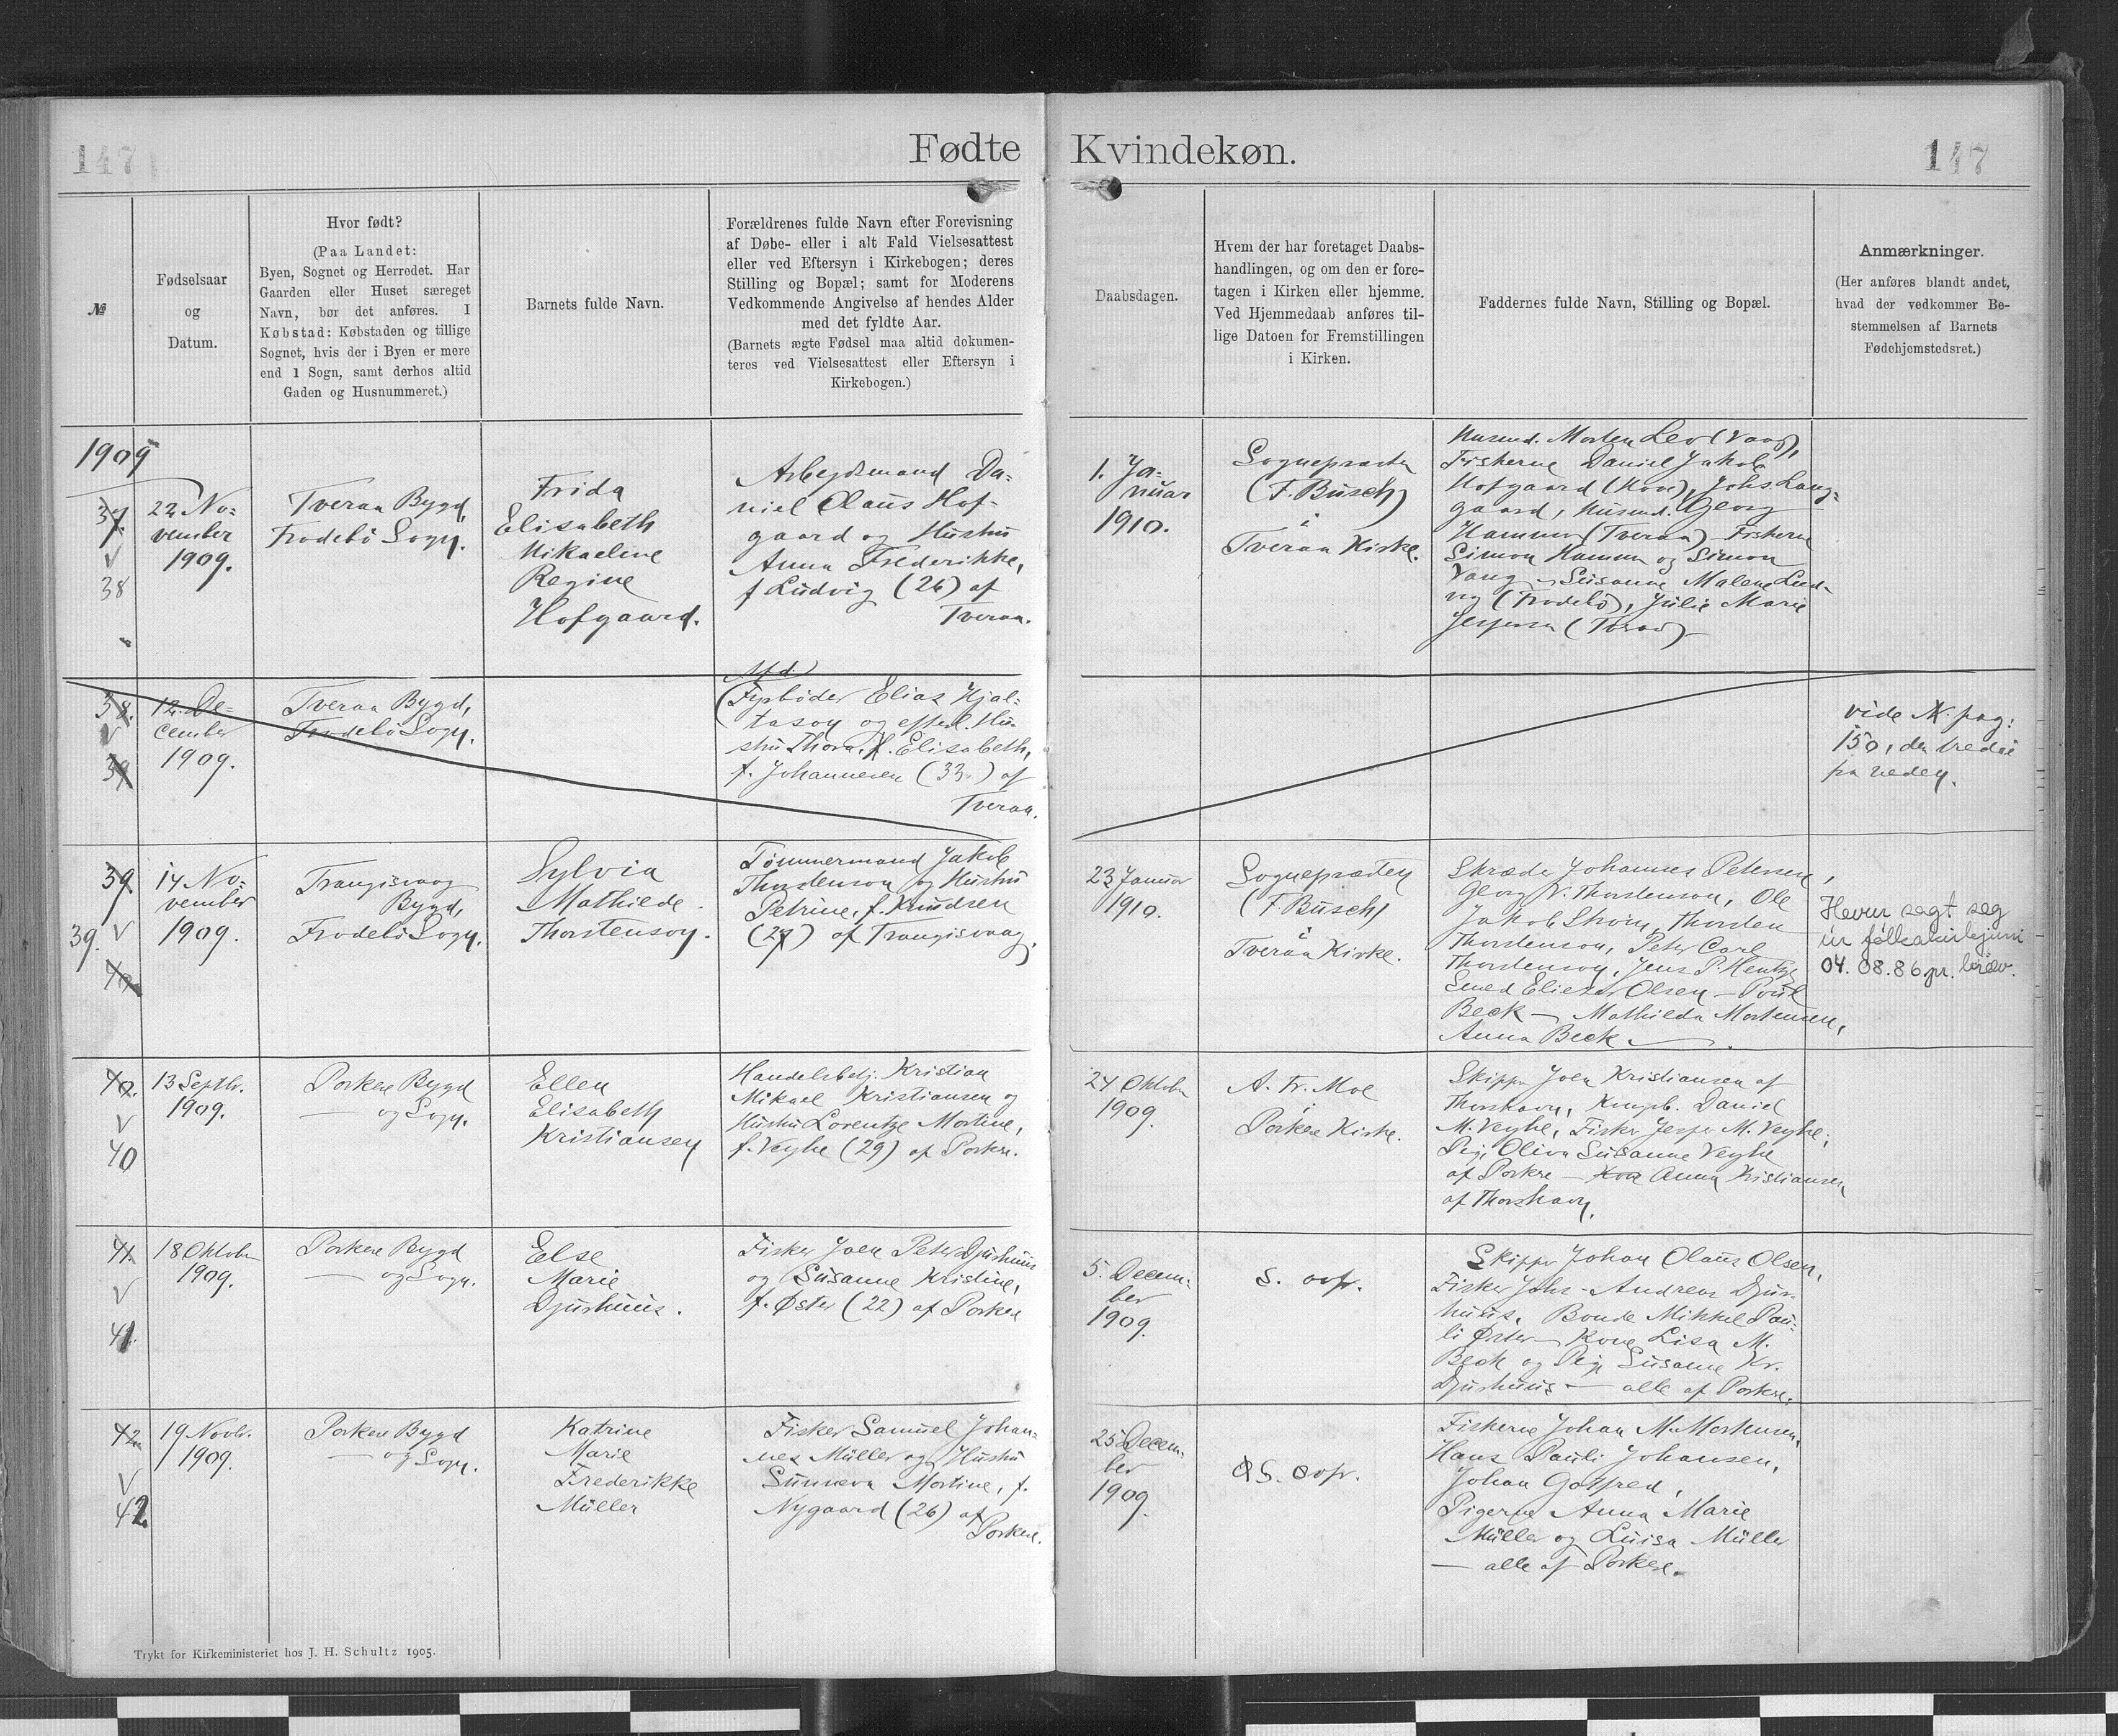 147
Fødte
Kvindekøn.
147
№
Fødselsaar
og
Datum.
Hvor født?
(Paa Landet:
Byen, Sognet og Herredet. Har
Gaarden eller Huset særeget
Navn, bør det anføres. I
Købstad: Købstaden og tillige
Sognet, hvis der i Byen er mere
end 1 Sogn, samt derhos altid
Gaden og Husnummeret.)
Barnets fulde Navn.
Forældrenes fulde Navn efter Forevisning
af Døbe- eller i alt Fald Vielsesattest
eller ved Eftersyn i Kirkebogen; deres
Stilling og Bopæl; samt for Moderens
Vedkommende Angivelse af hendes Alder
med det fyldte Aar.
(Barnets ægte Fødsel maa altid dokumen-
teres ved Vielsesattest eller Eftersyn i
Kirkebogen.)
Daabsdagen.
Hvem der har foretaget Daabs-
handlingen, og om den er fore-
tagen i Kirken eller hjemme.
Ved Hjemmedaab anføres til-
lige Datoen for Fremstillingen
i Kirken.
Faddernes fulde Navn, Stilling og Bopæl.
Anmærkninger.
(Her anføres blandt andet,
hvad der vedkommer Be-
stemmelsen af Barnets
Fødehjemstedsret.)
1909
37.
38
22 No-
vember
1909.
Tveraa Bygd,
Frodebö Sogn.
Frida
Elisabeth
Mikaeline
Regine
Hofgaard.
Arbejdsmand Da-
niel Olaus Hof-
gaard og Hustru
Anna Frederikke,
f Ludvig (26) af
Tveraa.
1. Ja-
nuar
1910.
Sognepræsten
(F. Busch)
i
Tveraa Kirke.
Husmd. Morten Leo (Vaag),
Fiskerne Daniel Jakob
Hofgaard (Hove), Johs Lang-
gaard, Husmd. Georg
Hammer (Tveraa) - Fiskerne
Simon Hammer og Simon
Vang - Susanne Malene Lud-
vig (Frodebö), Julie Marie
Jespersen
38.
39
12. De-
cember
1909.
Tveraa Bygd,
Frodebö Sogn.
Elias Hjal-
tason og Hu-
stru Thora, f. Elisabeth,
f. Johannesen (33) af
Tveraa.
vide № pag:
150, den tredie
fra neden.
39.
39.
40
14 No-
vember
1909.
Trangisvaag
Bygd,
Frodebö Sogn.
Sylvia
Mathilde
Thorstenson.
Tömmermand Jakob
Thorstenson og Hustru
Petrine, f. Knudsen
(27) af Trangisvaag.
23 Januar
1910.
Sognepræsten
(F. Busch)
i
Tveraa Kirke.
Skræder Johannes Petersen,
Georg V. Thorstenson, Ole
Jakob Ström, Thorsten
Thorstenson, Peter Carl
Thorstenson, Jens P. Hentze
Smed Eliezer Olsen - Poul
Beck - Mathilda Mortensen,
Anna Beck
Hevur sagt seg
úr fólkakirkjuni
04.08.86 pr. bræv.
40.
40
13 Septbr.
1909.
Porkere Bygd
— og Sogn.
Ellen
Elisabeth
Kristiansen
Handelsbetj. Kristian
Mikael Kristiansen og
Hustru Lorentze Mortine,
f. Veyhe (29) af Porkere.
24 Oktober
1909.
A. Fr. Moe
i
Porkere Kirke.
Skipper Joen Kristiansen af
Thorshavn, Kongsb. Daniel
M. Veyhe, Fisker Jesper M. Veyhe,
Pige Oliva Susanne Veyhe
af Porkere - Kone Anna Kristiansen
af Thorshavn.
41.
41.
18 Oktober
1909.
Porkere Bygd
— og Sogn.
Else
Marie
Djurhuus.
Fisker Joen Peter Djurhuus
og Susanne Kristine,
f. Øster (22) af Porkere
5. Decem-
ber
1909.
s. ovfr.
Skipper Johan Olaus Olsen,
Fisker Johs. Andreas Djur-
huus, Bonde Mikkel Pau-
li Øster - Kone Lisa M.
Beck og Pige Susanne Kr.
Djurhuus - alle af Porkere.
42.
42.
19 Novbr.
1909.
Porkere Bygd
— og Sogn.
Katrine
Marie
Frederikke
Müller
Fisker Samuel Johan-
nes Müller og Hustru
Sunneva Mortine, f.
Nygaard (26) af
Porkere.
25 Decem-
ber
1909.
S. ovfr.
Fiskerne Johan M. Mortensen,
Hans Pauli Johansen,
Johan Gotfred,
Pigerne Anna Marie
Müller og Luisa Müller
— alle af Porkere.
Trykt for Kirkeministeriet hos J. H. Schultz 1905.